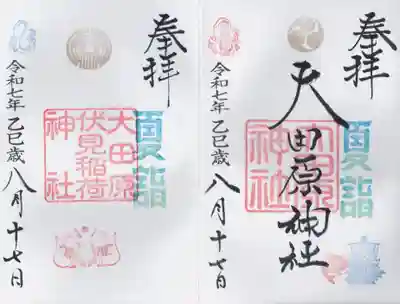 奉拝
夏詣
大田原神社
令和七年 乙巳歳 八月十七日
奉拝
夏詣
大田原
伏見稲荷
神社
令和七年 乙巳歳 八月十七日